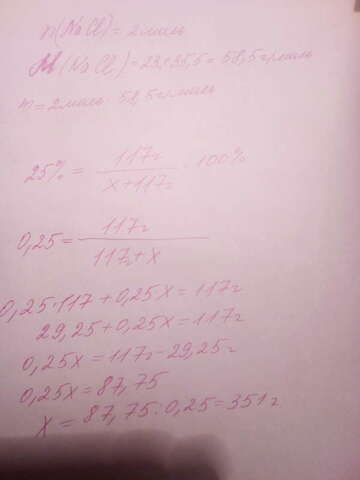 n(NaCl) = 2 моль
M(NaCl) = 23+35,5 = 58,5 г/моль
m = 2 моль · 58,5 г/моль
25% = 117г / x+117г · 100%
0,25 = 117г / 117г+x
0,25·117 + 0,25x = 117г
29,25 + 0,25x = 117г
0,25x = 117г - 29,25г
0,25x = 87,75
x = 87,75 : 0,25 = 351г